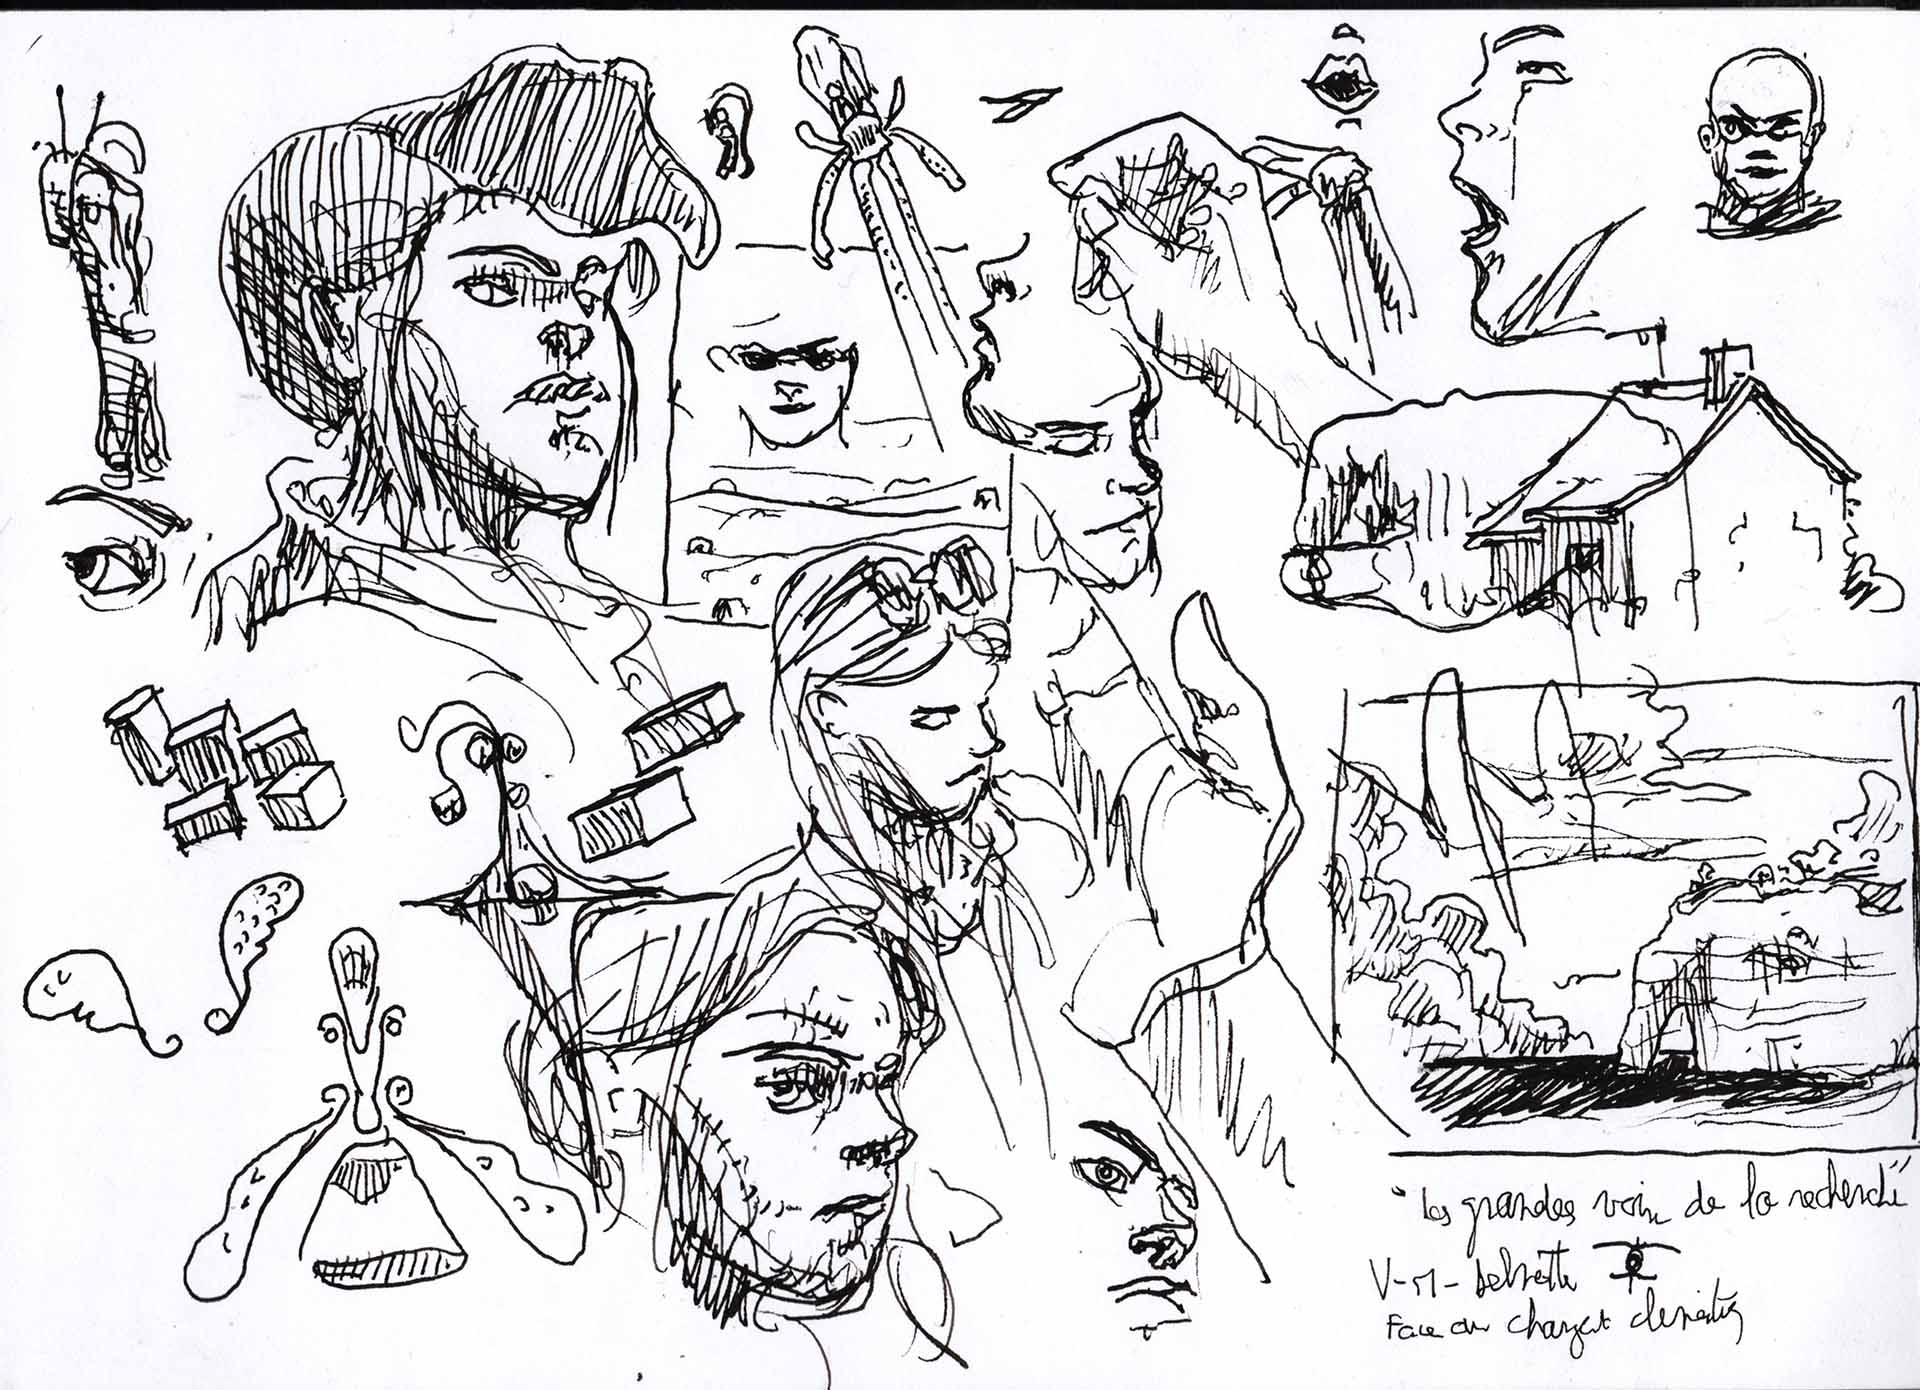 "Les grandes voix de la recherche"
V-M- Delmotte
Face au changt climatiq